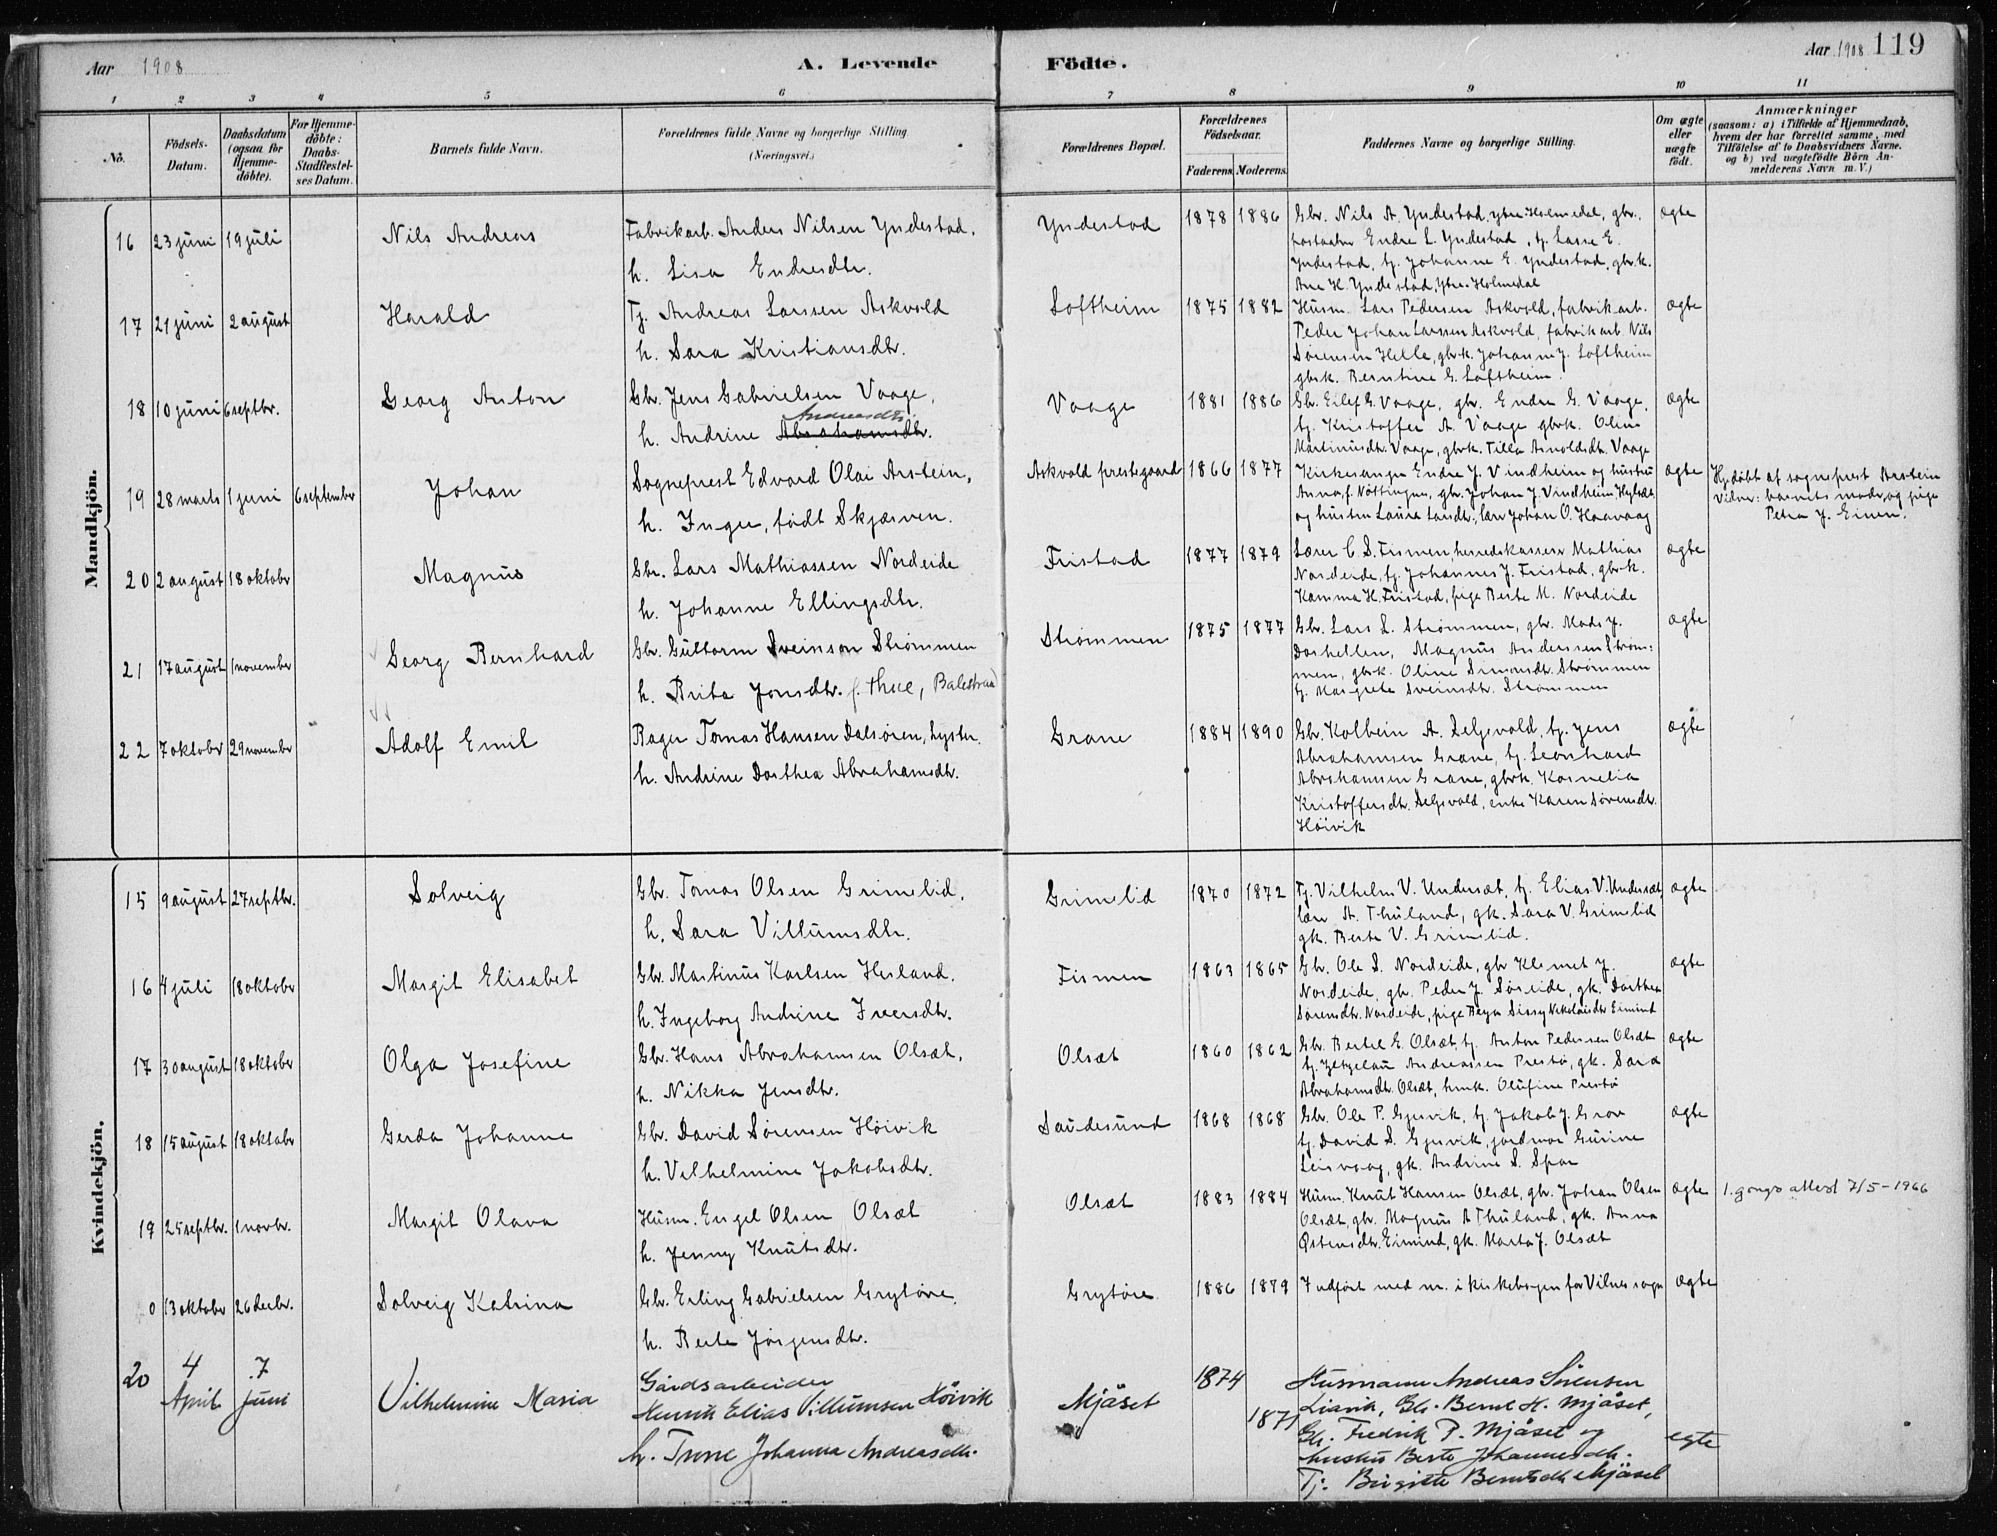 Aar 1908
A. Levende
Födte.
Aar 1908 119
1 2 3 4 5 6 7 8 9 10 11
No.
Födsels-
Datum.
Daabsdatum
(ogsaa for
Hjemme-
döbte).
For Hjemme-
döbte:
Daabs-
Stadfæstel-
ses Datum.
Barnets fulde Navn.
Forældrenes fulde Navne og borgerlige Stilling.
(Næringsvei.)
Forældrenes Bopæl.
Forældrenes
Födselsaar.
Faderens. Moderens.
Faddernes Navne og borgerlige Stilling.
Om ægte
eller
uægte
født.
Anmærkninger
(saasom: a) i Tilfælde af Hjemmedaab,
hvem der har forrettet samme, med
Tilföielse af to Daabsvidners Navne.
og b) ved uægtefödte Börn An-
melderens Navn m. V.)
Mandkjön.
16 23 juni 19 juli Nils Andreas Fabrikarb. Anders Nilsen Yndestad.
h. Lisa Endresdtr.
Yndestad 1878 1886 Gbr. Nils A. Yndestad, ytre Holmedal, gbr.,
Endre L. Yndestad, tj. Lasse E.
Yndestad, tj. Johanne E. Yndestad, gbrk.
Ane H. Yndestad, Ytre-Holmedal
ægte
17 21 juni 2 august Harald Tj. Andreas Larssen Askvold
h. Sara Kristiansdtr.
Loftheim 1875 1882 Husm. Lars Pedersen Askvold, fabrikarb.
Peder Johan Larssen Askvold, fabrikarb. Nils
Sørensen Helle, gbrk. Johanne J. Loftheim
gbrk. Berntine G. Loftheim.
ægte
18 10 juni 6 septbr. Georg Anton Gbr. Jens Gabrielsen Vaage,
Andreasdtr.
h. Andrine Abrahamsdtr.
Vaage 1881 1886 Gbr. Eilef G. Vaage, gbr. Endre G. Vaage,
tj. Kristoffer A. Vaage gbrk. Olina
Martinusdtr. Vaage, gbrk. Tilla Arnoldsdtr. Vaage
ægte
19 28 marts 1 juni 6 september Johan Sogneprest Edvard Olai Arstein,
h. Inga, født Skjærven.
Askvold prestegaard 1866 1877 Kirkesanger Endre J. Vindheim og hustru
Anna, f. Nøttingnes, gbr. Johan J. Vindheim
og hustru Laura Larsdtr., lærer Johan O. Haavaag
ægte Hj.døbt af sogneprest Arstein
Vidner: barnets moder, og pige
Petra J. Einen.
20 2 august 18 oktobr Magnus Gbr. Lars Mathiassen Nordeide
h. Johanne Ellingsdtr.
Fristad 1877 1879 Lærer C. S. Fismen, herredskasserer Mathias
Nordeide, tj. Johannes J. Fristad, gbrk.
Kamma H. Fristad, pige Berte M. Nordeide
ægte
21 17 august 1 november Georg Bernhard Gbr. Guttorm Sveinson Strømmen
h. Brita Jonsdtr. f. Thue, Balestrand
Strømmen 1875 1877 Gbr. Lars L. Strømmen, gbr. Mads J.
Doshellen, Magnus Anderssen Strøm:
men, gbrk. Oline Simonsdtr. Strømmen
tj. Margreta Sveinsdtr. Strømmen
ægte
22 7 oktober 29 november Adolf Emil Bager Tomas Hansen Dalsøren, Lyster.
h. Andrine Dorthea Abrahamsdtr.
Grane 1884 1890 Gbr. Kolbein A. Delgvold, tj. Jens
Abrahamsen Grane, tj. Leonhard
Abrahamsen Grane, gbrk. Kornelia
Kristoffersdtr. Delgvold, enke Karen Sørensdtr.
Høivik
ægte
Kvindekjön.
15 9 august 27 septbr. Solveig Gbr. Tomas Olsen Grimelid,
h. Sara Villumsdtr.
Grimelid 1870 1872 Tj. Vilhelm V. Undersæt, tj. Elias V. Undersæt,
lærer A. Thuland, gk. Sara V. Grimelid
gk. Berte V. Grimelid.
ægte
16 4 juli 18 oktober Margit Elisabet Gbr. Martinus Karlsen Hesland.
h. Ingeborg Andrine Iversdtr.
Fismen 1863 1865 Gbr. Ole S. Nordeide, gbr Klemet J.
Nordeide, gbr. Peder J. Søreide, gk. Dorthea
Sørensdtr. Nordeide, pige Sissy Nikolaisdtr Eimind
ægte
17 30 august 18 oktober Olga Josefine Gbr. Hans Abrahamsen Olsæt,
h. Nikka Jensdtr.
Olsæt 1860 1862 Gbr. Bertel E. Olsæt, tj. Anton Pedersen Olsæt
tj. Andreassen Prestø, gk. Sara
Abrahamsdtr. Olsæt, hmk. Olufine Prestø
ægte
18 15 august 18 oktobr Gerda Johanne Gbr. David Sørensen Høivik
h. Vilhelmine Jakobsdtr.
Saudesund 1868 1868 Gbr. Ole P. Gjesvik, tj. Jakob J. Grov
tj. David S. Gjesvik, jordmor Gurine
Leirvaag, gk. Andrine S. Spor
ægte
19 25 septbr. 1 novbr. Margit Olava Husm. Engel Olsen Olsæt
h. Jenny Knutsdtr.
Olsæt 1883 1884 Husm. Knut Hansen Olsæt, gbr. Johan Olsen
Olsæt, gbr. Magnus A Thuland, gk. Anna
Østensdtr. Eimind, gk. Marta J. Olsæt
ægte 1. gongs attest 7/5-1966
0 13 oktober 26 decbr. Solveig Katrina Gbr. Erling Gabrielsen Grytøre.
h. Berte Jørgensdtr.
Grytøre 1886 1879 Indført med nr. i kirkebogen for Vilnes sogn ægte
20 4 7
April Juni Vilhelmine Maria Gårdsarbeider
Henrik Elias Villumsen Høivik
h. Trine Johanna Andreasdtr.
Mjåset 1874
1871
Husmann Andreas Sørensen
Lisvik, Gbr. Bernt H. Mjåset,
Gbr. Fredrik P. Mjåset og
hustru Berte Johannesdtr.
Tj. Birgitte Berntsdtr Mjåset
egte